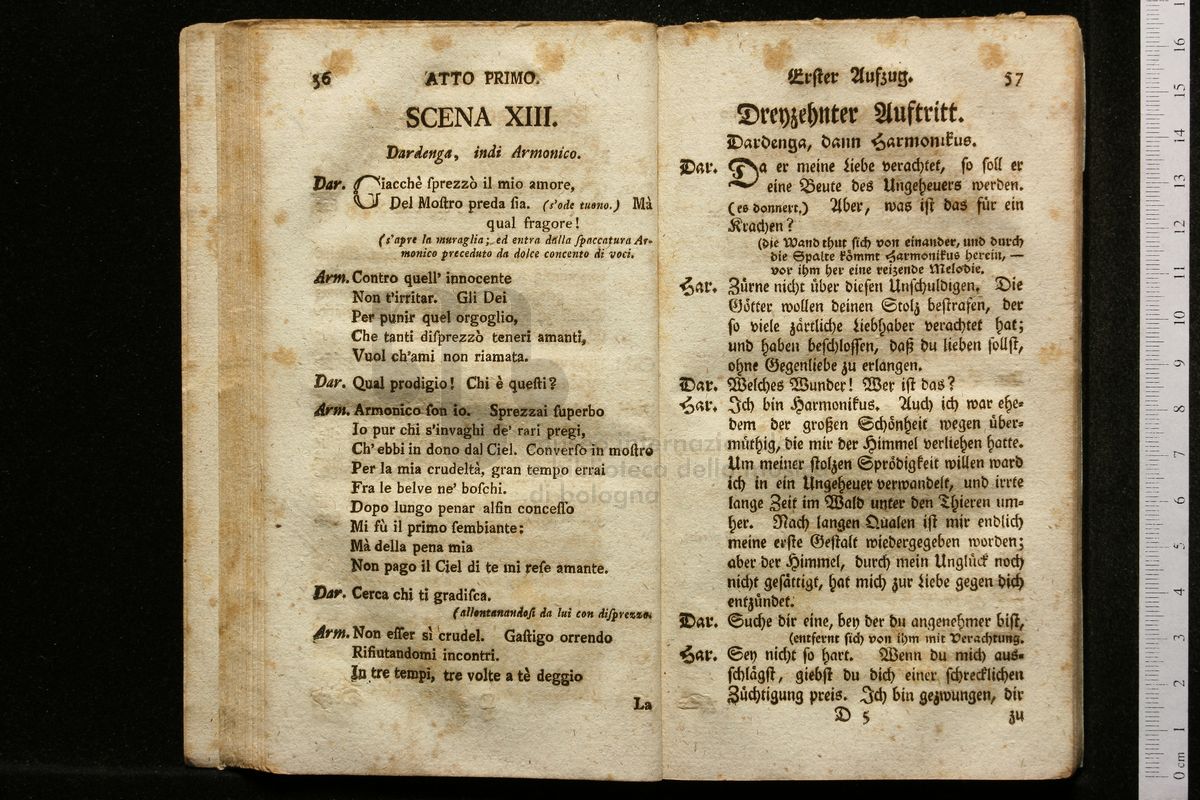 56 ATTO PRIMO.
SCENA XIII.
Dardenga, indi Armonico.
Dar. Giacchè ſprezzò il mio amore,
Del Moſtro preda ſia. (s'ode tuono.) Mà
qual fragore!
(s'apre la muraglia; ed entra dalla ſpaccatura Ar-
monico preceduto da dolce concento di voci.
Arm. Contro quell' innocente
Non t'irritar. Gli Dei
Per punir quel orgoglio,
Che tanti diſprezzò teneri amanti,
Vuol ch'ami non riamata.
Dar. Qual prodigio! Chi è queſti?
Arm. Armonico ſon io. Sprezzai ſuperbo
Io pur chi s'invaghi de' rari pregi,
Ch' ebbi in dono dal Ciel. Converſo in moſtro
Per la mia crudeltà, gran tempo errai
Fra le belve ne' boſchi.
Dopo lungo penar alfin conceſſo
Mi fù il primo ſembiante:
Mà della pena mia
Non pago il Ciel di te mi reſe amante.
Dar. Cerca chi ti gradiſca.
(allontanandoſi da lui con diſprezzo.
Arm. Non eſſer sì crudel. Gaſtigo orrendo
Rifiutandomi incontri.
In tre tempi, tre volte a tè deggio
La
Erſter Aufzug. 57
Dreyzehnter Auftritt.
Dardenga, dann Harmonikus.
Dar. Da er meine Liebe verachtet, ſo ſoll er
eine Beute des Ungeheuers werden.
(es donnert.) Aber, was iſt das für ein
Krachen?
(die Wand thut ſich von einander, und durch
die Spalte kömmt Harmonikus herein, —
vor ihm her eine reizende Melodie.
Har. Zürne nicht über dieſen Unſchuldigen. Die
Götter wollen deinen Stolz beſtrafen, der
ſo viele zärtliche Liebhaber verachtet hat;
und haben beſchloſſen, daß du lieben ſollſt,
ohne Gegenliebe zu erlangen.
Dar. Welches Wunder! Wer iſt das?
Har. Ich bin Harmonikus. Auch ich war ehe-
dem der großen Schönheit wegen über-
müthig, die mir der Himmel verliehen hatte.
Um meiner ſtolzen Sprödigkeit willen ward
ich in ein Ungeheuer verwandelt, und irrte
lange Zeit im Wald unter den Thieren um-
her. Nach langen Qualen iſt mir endlich
meine erſte Geſtalt wiedergegeben worden;
aber der Himmel, durch mein Unglück noch
nicht geſättigt, hat mich zur Liebe gegen dich
entzündet.
Dar. Suche dir eine, bey der du angenehmer biſt,
(entfernt ſich von ihm mit Verachtung.
Har. Sey nicht ſo hart. Wenn du mich aus-
ſchlägſt, giebſt du dich einer ſchrecklichen
Züchtigung preis. Ich bin gezwungen, dir
D 5 zu